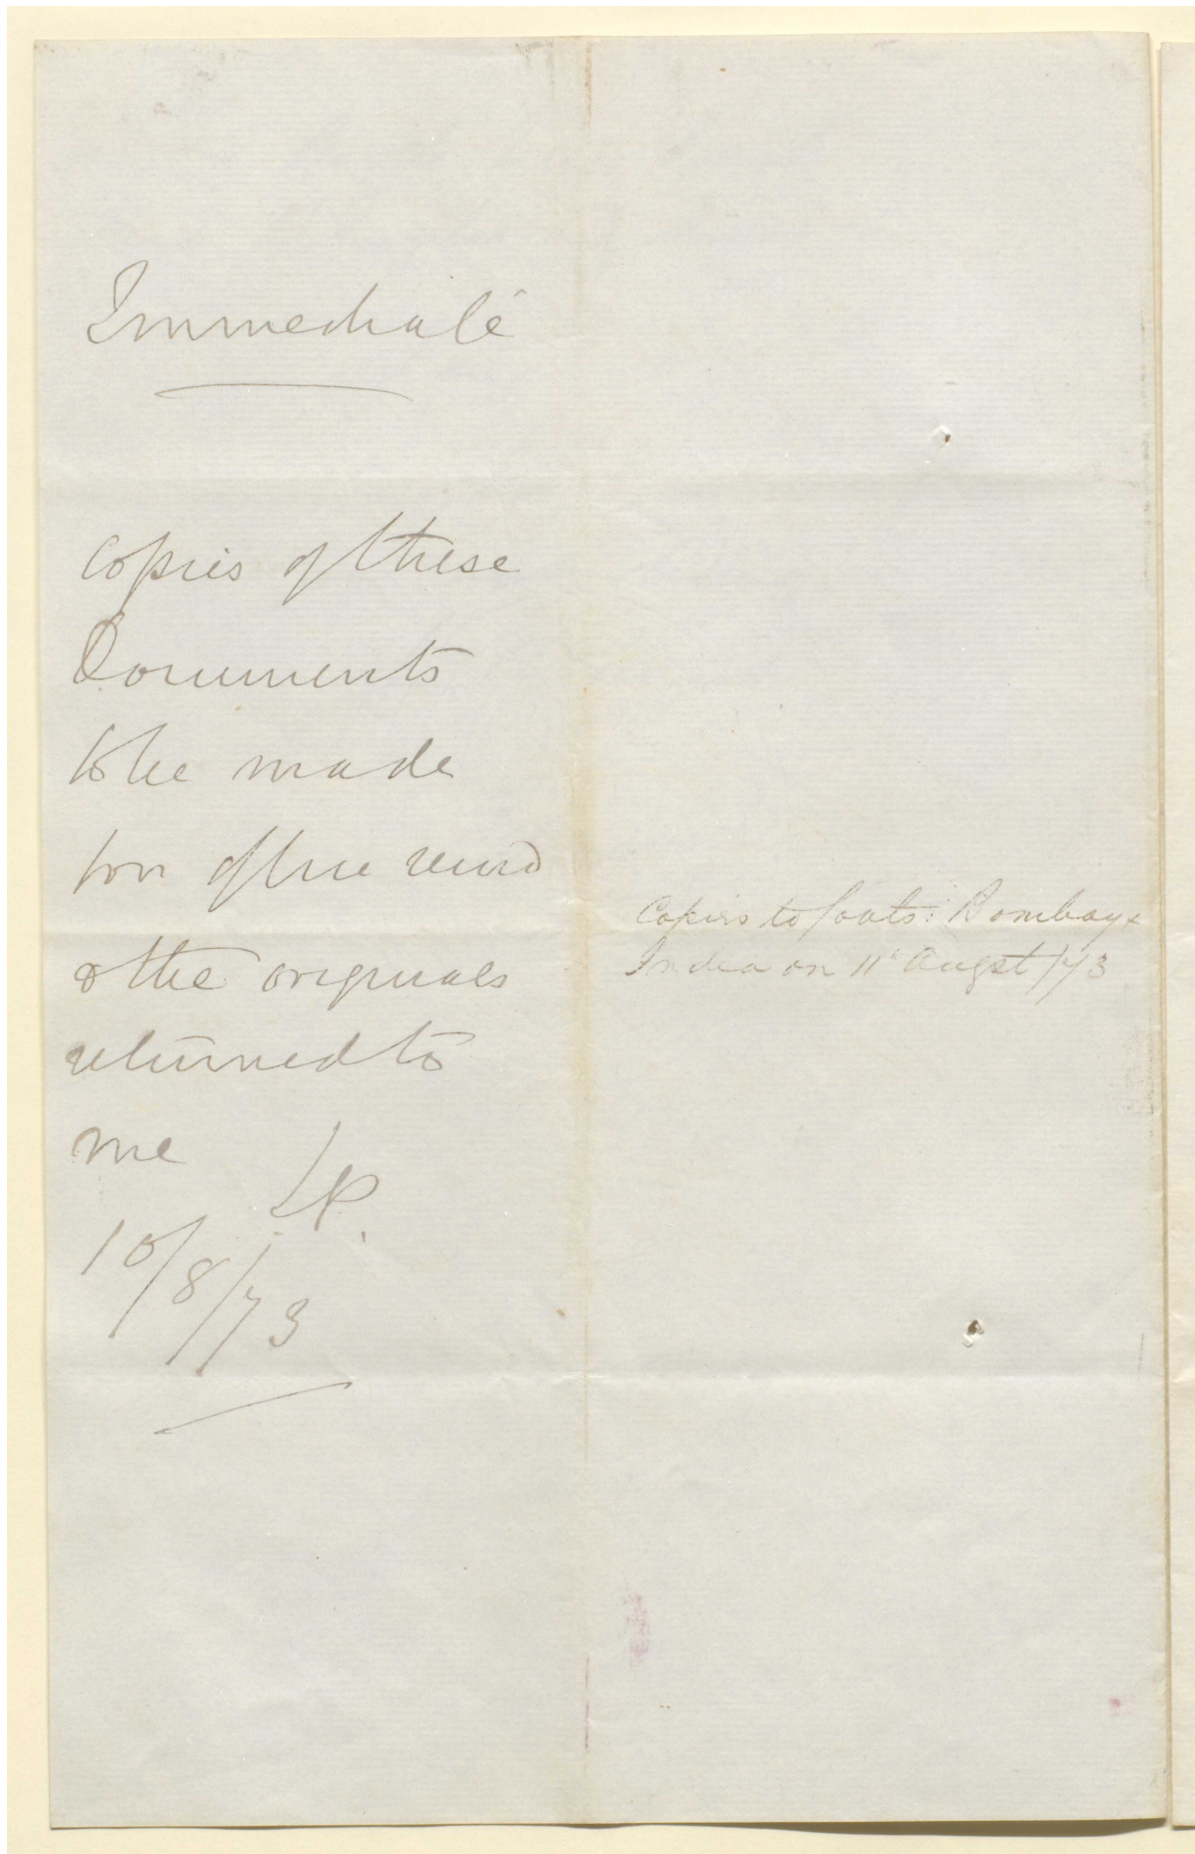 Immediate
Copies of these
Documents
to be made
for office record
& the originals
returned to
me LP.
10/8/73
Copies to Govts: Bombay &
India on 11th Augst /73